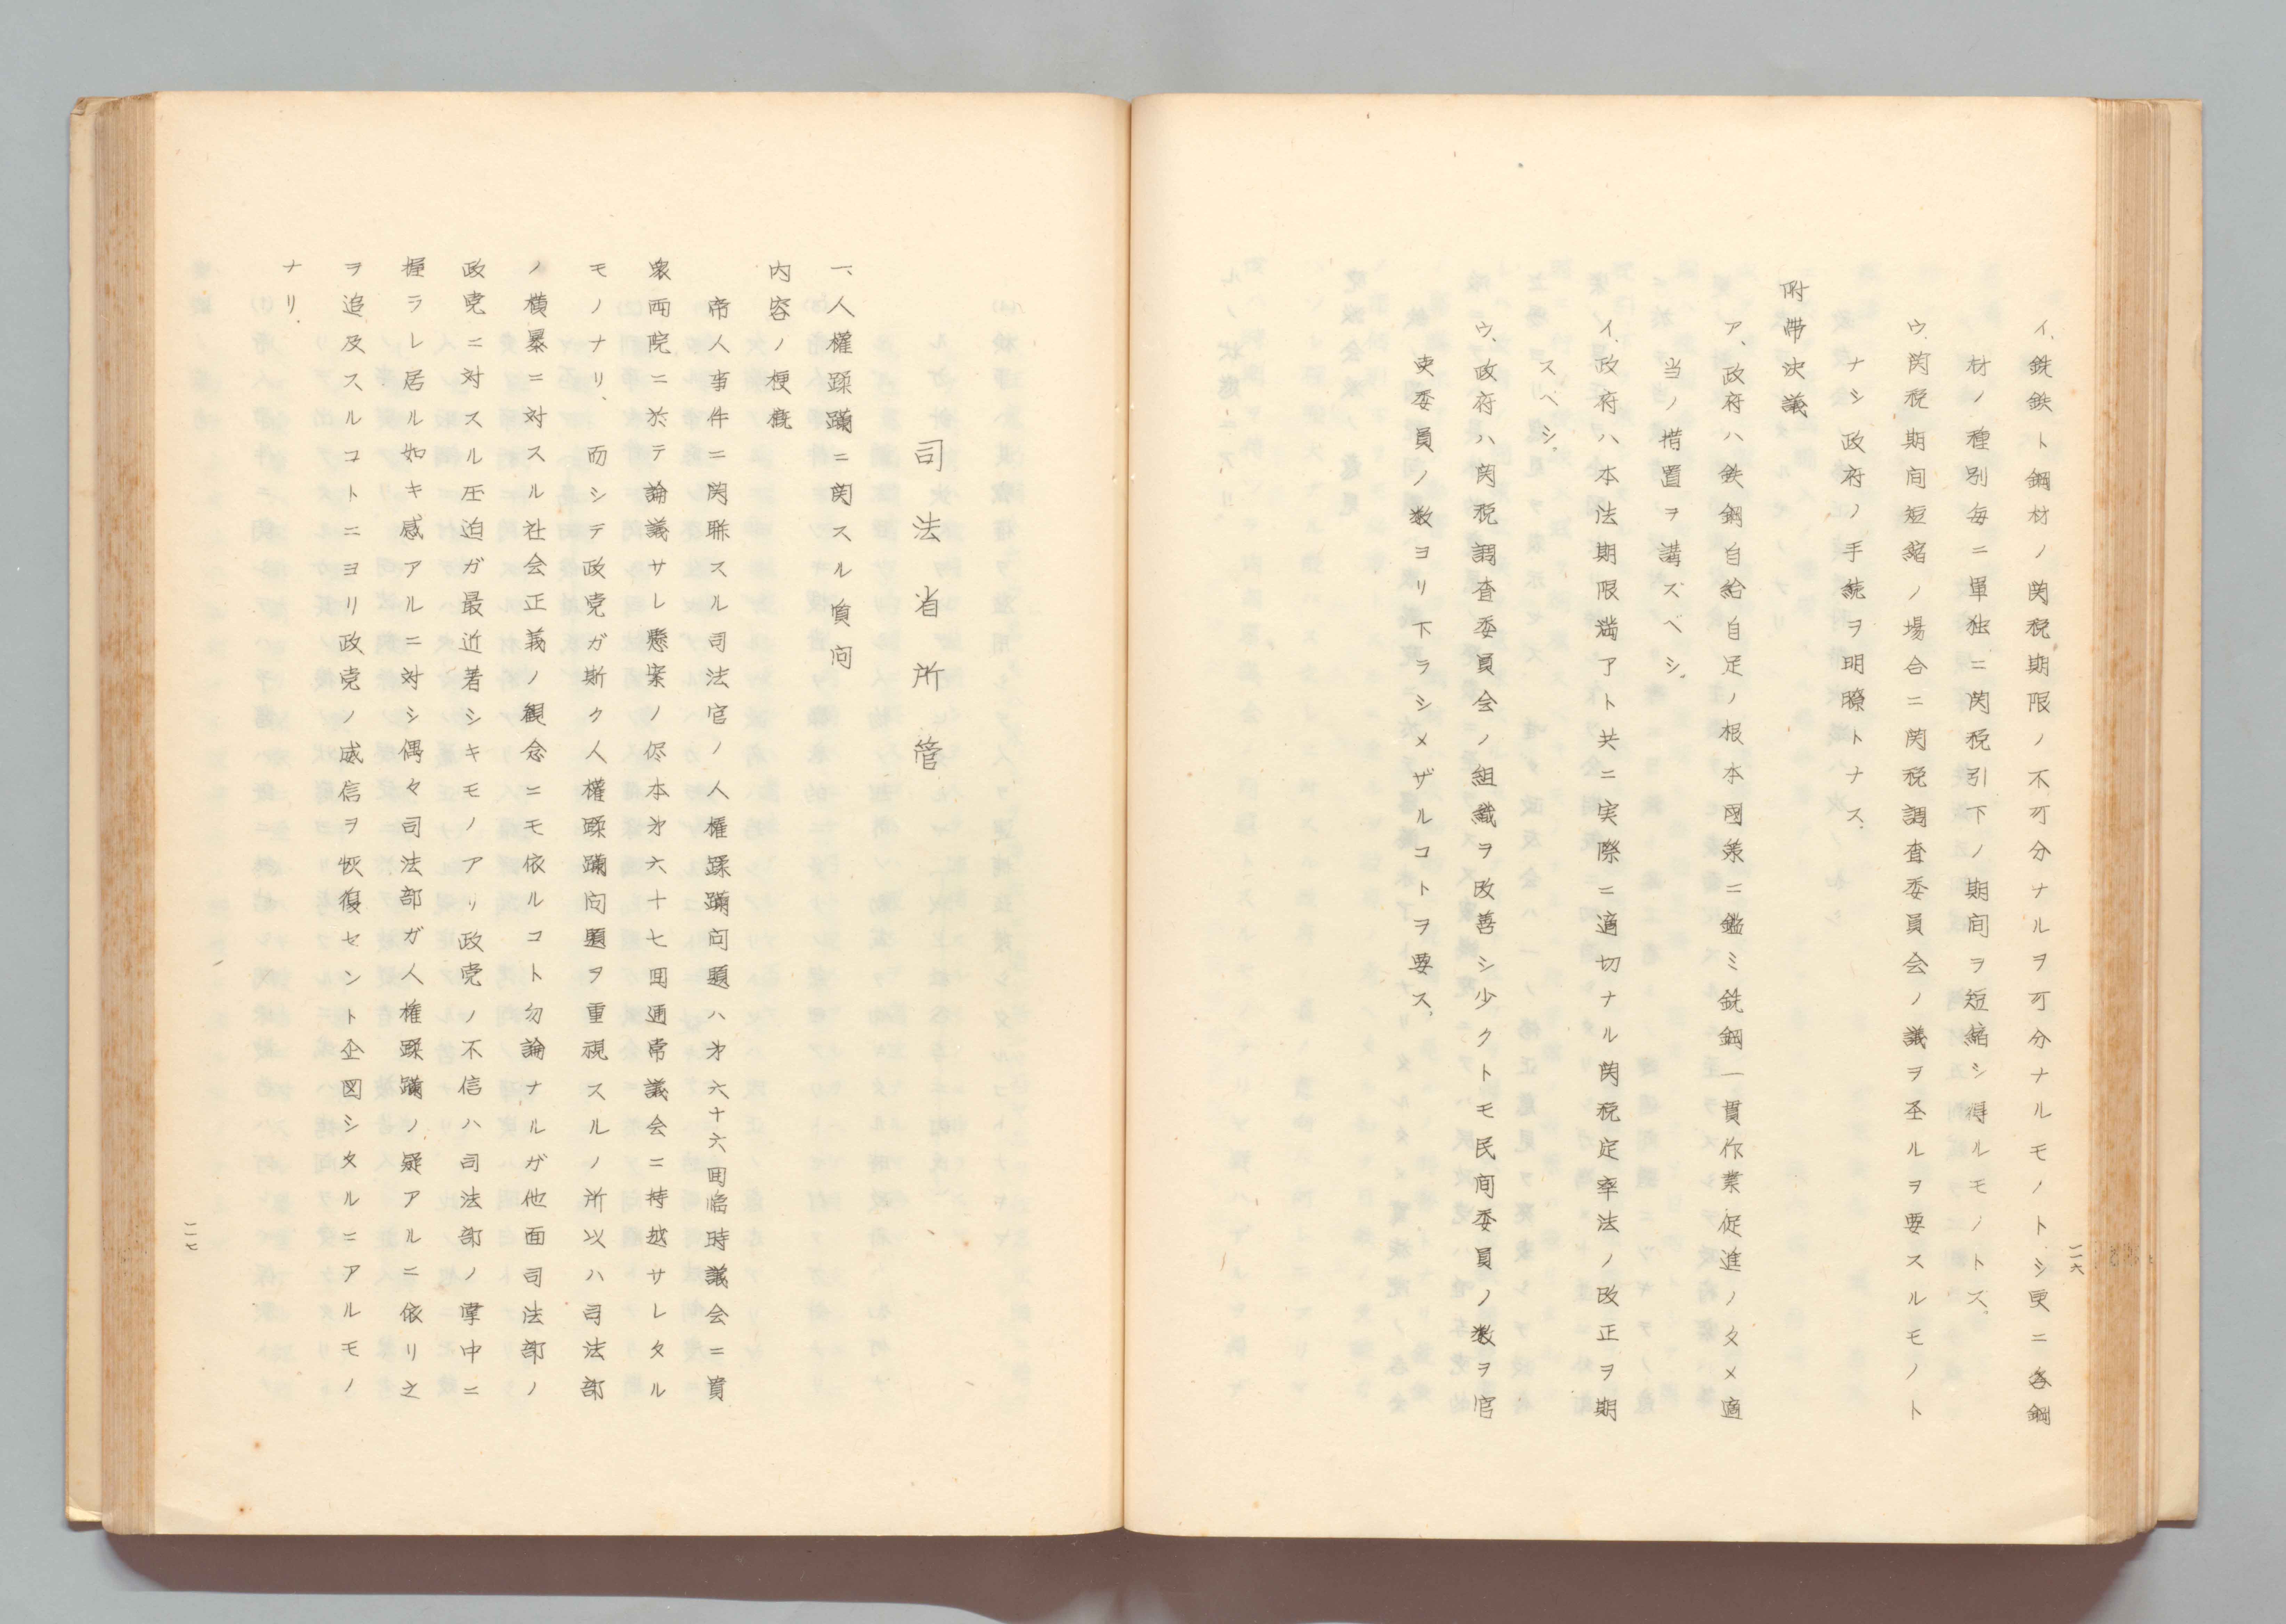 イ、銑鉄ト鋼材ノ関税期限ノ不可分ナルヲ可分ナルモノトシ更ニ各鋼
材ノ種別毎ニ単独ニ関税引下ノ期间ヲ短縮シ得ルモノトス、
ウ、関税期间短縮ノ場合ニ関税調査委員会ノ議ヲ圣ルヲ要スルモノト
ナシ政府ノ手続ヲ明瞭トナス、
附帯決議
ア、政府ハ鉄鋼自給自足ノ根本国策ニ鑑ミ銑鋼一貫作業促進ノタメ適
当ノ措置ヲ講ズベシ。
イ、政府ハ本法期限満了ト共ニ実際ニ適切ナル関税定率法ノ改正ヲ期
スベシ、
ウ、政府ハ関税調査委員会ノ組織ヲ改善シ少クトモ民间委員ノ数ヲ官
吏委員ノ数ヨリ下ラシメザルコトヲ要ス、
一一六
司法省所管
一、人權蹂躙ニ関スル質问
内容ノ梗概
帝人事件ニ関聯スル司法官ノ人権蹂躙问題ハ才六十六囬臨時議会ニ貴
衆両院ニ於テ論議サレ懸案ノ侭本才六十七囬通常議会ニ持越サレタル
モノナリ、而シテ政党ガ斯ク人權蹂躙问題ヲ重視スルノ所以ハ司法部
ノ横暴ニ対スル社会正義ノ観念ニモ依ルコト勿論ナルガ他面司法部ノ
政党ニ対スル圧迫ガ最近著シキモノアリ政党ノ不信ハ司法部ノ掌中ニ
握ラレ居ル如キ感アルニ対シ偶々司法部ガ人権蹂躙ノ疑アルニ依リ之
ヲ追及スルコトニヨリ政党ノ威信ヲ恢復セント企図シタルニアルモノ
ナリ、
一一七